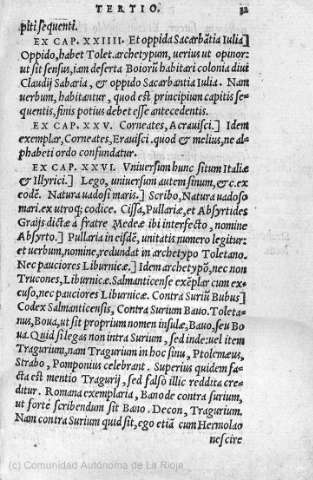 TERTIO. 32
pitisequenti.
EX CAP. XXIIII. Et oppida Sacarbātia Iulia]
Oppido, habet Tolet. archetypum, uerius ut opinor:
ut sit sensus, iam deserta Boiorū habitari colonia diui
Claudij Sabaria, & oppido Sacarbantia Iulia. Nam
uerbum, habitantur, quod est principium capitis se-
quentis, finis potius debet esse antecedentis.
EX CAP. XXV. Corneates, Acrauisci.] Idem
exemplar, Corneates, Erauisci. quod & melius, ne al-
phabeti ordo confundatur.
EX CAP. XXVI. Vniuersum hunc situm Italiæ
& Illyrici.] Lego, uniuersum autem sinum, & c. ex
eodē. Natura uadosi maris.] Scribo, Natura uadoso
mari. ex utroq; codice. Cissa, Pullariæ, et Absyrtides
Graijs dictæ à fratre Medeæ ibi interfecto, nomine
Absyrto.] Pullaria in eisdē, unitatis numero legitur:
et uerbum, nomine, redundat in archetypo Toletano.
Nec pauciores Liburnicæ.] Idem archetypō, nec non
Trucones, Liburnicæ. Salmanticense exēplar cum ex-
cuso, nec pauciores Liburnicæ. Contra Suriū Bubus]
Codex Salmanticensis, Contra Surium Bauo. Toleta-
nus, Boua, ut sit proprium nomen insulæ, Bauo, seu Bo
ua. Quid si legas non intra Surium, sed inde: uel item
Tragurum, nam Tragurium in hoc sinu, Ptolemæus,
Strabo, Pomponius celebrant. Superius quidem fa-
cta est mentio Tragurij, sed falso illic reddita cre-
ditur. Romana exemplaria, Bano de contra surium,
ut forte scribendum sit Bano. Decon, Tragurium.
Nam contra Surium quid sit, ego etiā cum Hermolao
nescire
(c) Comunidad Autónoma de La Rioja